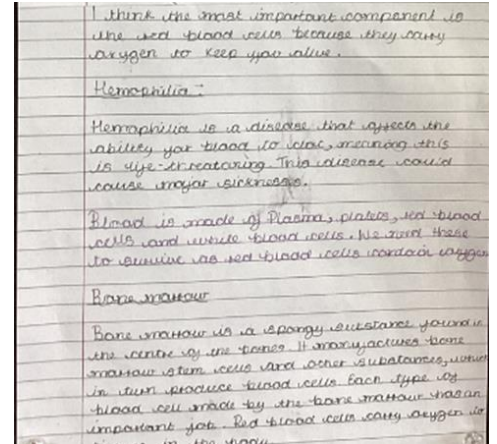 I think the most important component is
the red blood cells because they carry
oxygen to keep you alive.
Hemophilia:
Hemophilia is a disease that affects the
ability for blood to clot, meaning this
is life-threatening. This disease could
cause major sickness.
Blood is made of Plasma, plates, red blood
cells and white blood cells. We need these
to survive as red blood cells contain oxygen
Bone marrow
Bone marrow is a spongy substance found in
the centre of the bones. It manufactures bone
marrow stem cells and other substances, which
in turn produce blood cells. Each type of
blood cell made by the bone marrow has an
important job. Red blood cells carry oxygen to
in the body